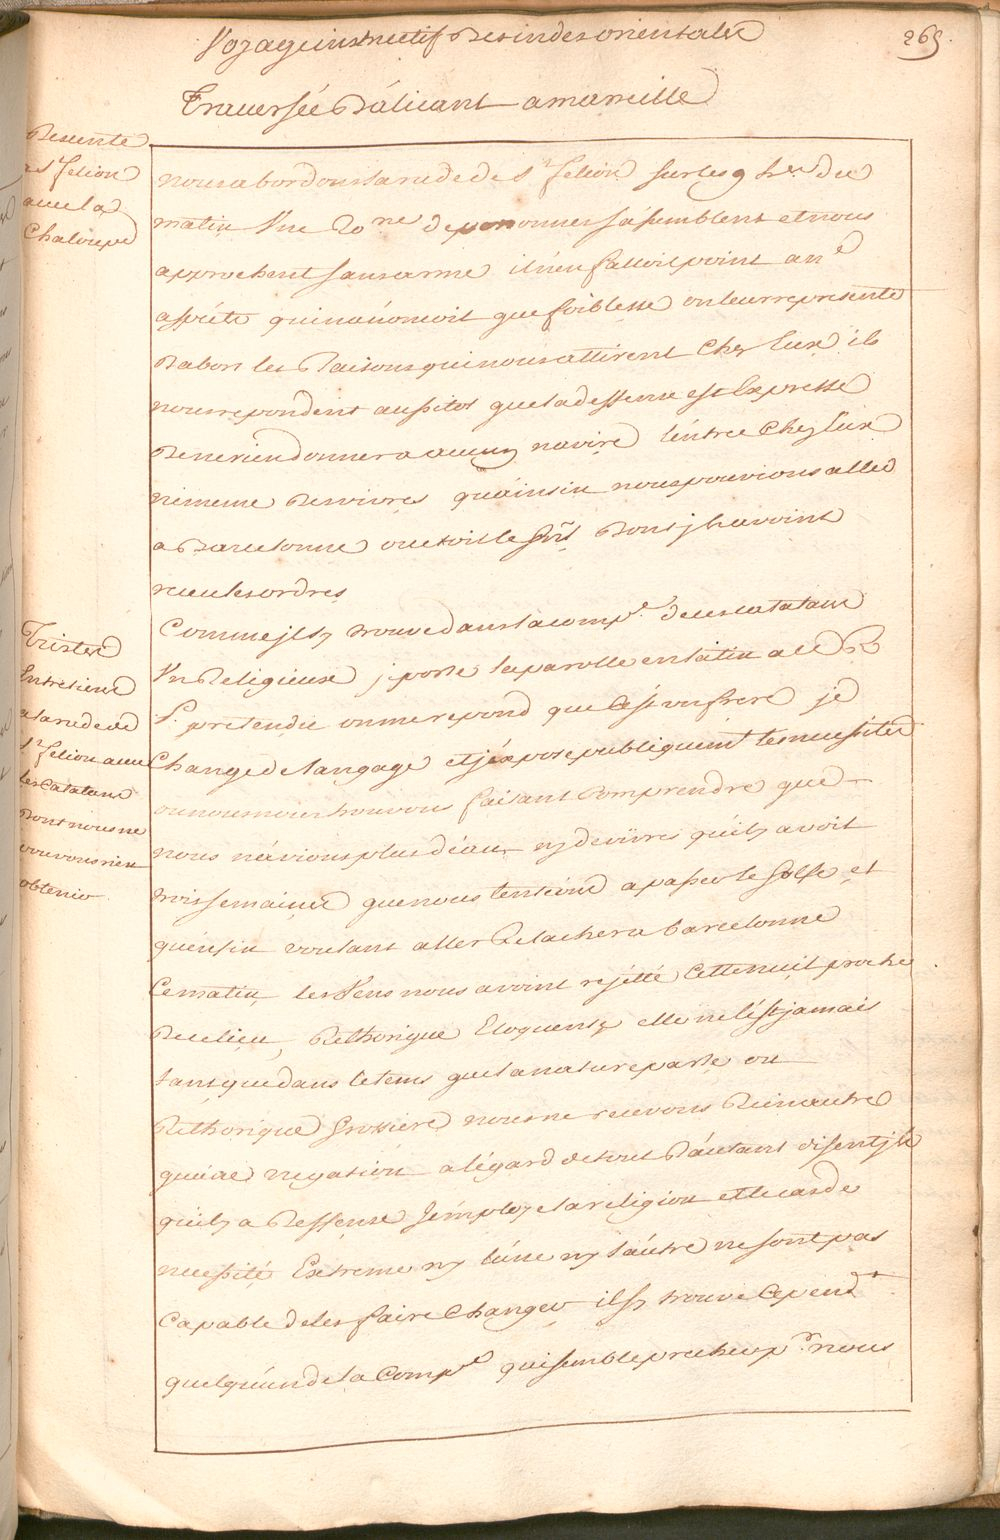 Voyage instructif Des indes orientales
265
Traversée D'alicant a marseille
Descente
a St felion
avec la
Chaloupe
nous abordons la rade de St felion sur les 9 hes du
matin Vne 20ne de personnes s'assemblent et nous
approchent sans arme il n'en falloit point an e
assiete qui n'anoncoit que foiblesse on leur represente
Dabort les Raisons qui nous attirent Chez Eux ils
nous repondent aussitot que la deffense est Expresse
De ne rien donner a aucun navire l'entree Chez Eux
ni meme Des vivres qu'ainsin nous pouvions aller
a Barcelonne ou etoit le Dont ils avoint
receu les ordres
Comme jl sy trouve dans la compe de ces catalans
Vn Religieux j porte la parolle en latin a ce R
P. pretendu on me repond que C'est un frere je
Change de langage et j'expose publiquemt les necessites
ou nous nous trouvons faisant Comprendre que
nous n'avions plus d'eau ny de vivres qu'il y avoit
trois semaines que nous tentions a passer le Golfe et
qu'enfin voulant aller Relacher a barcelonne
Ce matin les Vens nous avoint rejetté Cette nuit proche
De ce lieu, Rethorique Eloquente elle ne l'est jamais
tant que dans le tems que la nature parle ou
Rethorique Grossiere nous ne recevons Rien autre
que negation a l'egard de tout D'autant disent jls
qu'il y a Deffense J'employe la religion et le cas de
necessité Extreme ny l'une ny l'autre ne sont pas
Capable de les faire Changer il sy trouve Cependt
quelqu'un de la Compe qui semble precher pr nous
Tristes
Entretiens
a la rade de
St felion avec
les Catalans
Dont nous ne
pouvons rien
obtenir